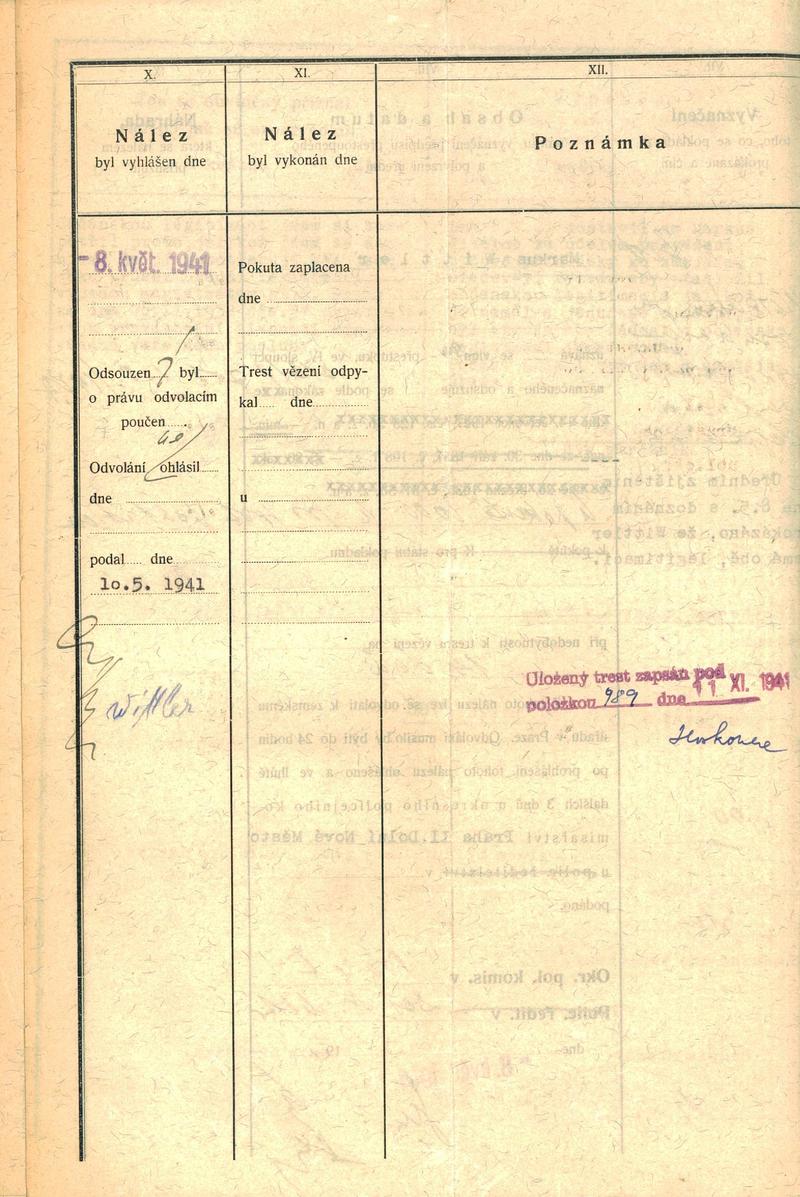 X.
Nález
byl vyhlášen dne
-8. květ. 1941
Odsouzen byl
o právu odvolacím
poučen
Odvolání ohlásil
dne
podal dne
10.5. 1941
Wittler
XI.
Nález
byl vykonán dne
Pokuta zaplacena
dne
Trest vězení odpy-
kal dne
u
XII.
Poznámka
Uložený trest zapsán pod
položkou 989 dne 11 XI. 1941